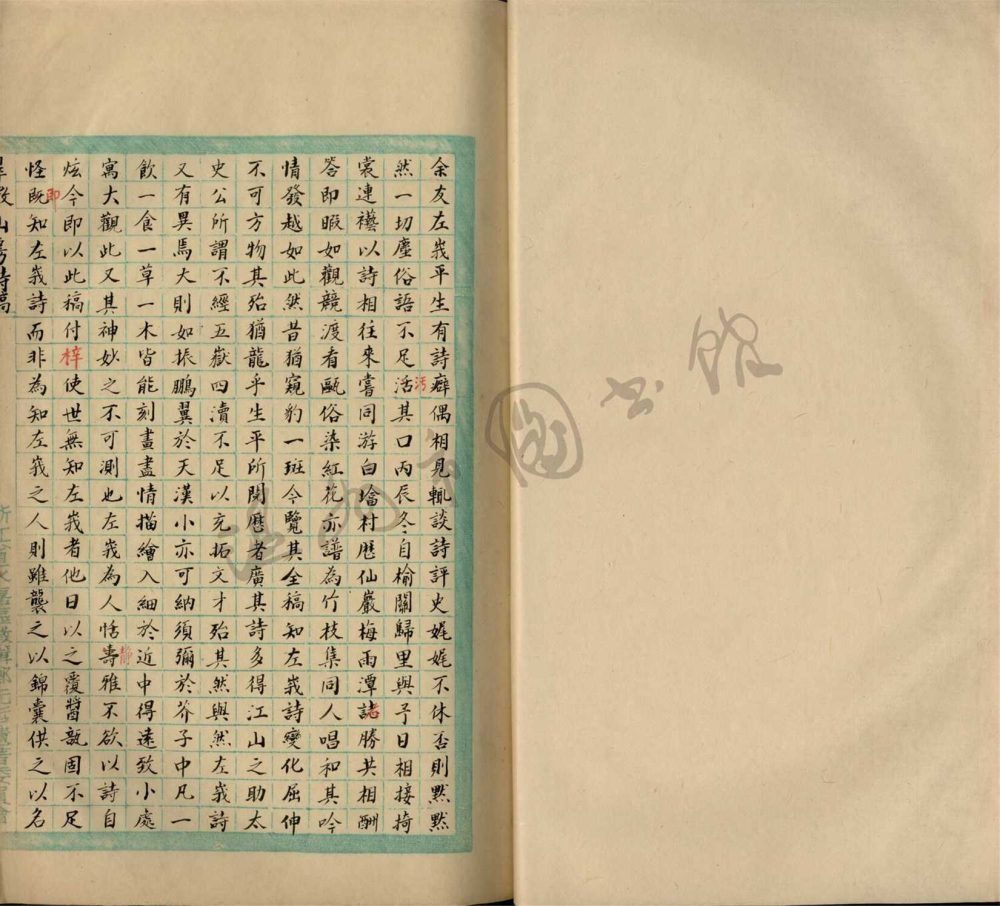 余友左峩平生有詩癖偶相見輒談詩評史娓娓不休否則默默
然一切塵俗語不足活其口丙辰冬自榆關歸里與予日相接掎
裳連襼以詩相往來嘗同游白墖村歷仙巖梅雨潭諸勝共相酬
答即暇如觀競渡看甌俗染紅花亦譜為竹枝集同人唱和其吟
情發越如此然昔猶窺豹一斑今覽其全稿知左峩詩變化屈伸
不可方物其殆猶龍乎生平所閱歷者廣其詩多得江山之助太
史公所謂不經五嶽四瀆不足以充拓文才殆其然與然左峩詩
又有異焉大則如振鵬翼於天漢小亦可納須彌於芥子中凡一
飲一食一草一木皆能刻畫盡情描繪入細於近中得遠致小處
寓大觀此又其神妙之不可測也左峩為人恬壽雅不欲以詩自
炫今即以此稿付梓使世無知左峩者他日以之覆醬瓿固不足
怪既知左峩詩而非為知左峩之人則雖襲之以錦囊供之以名
污
老
靜
即
山房詩稿
圖書館